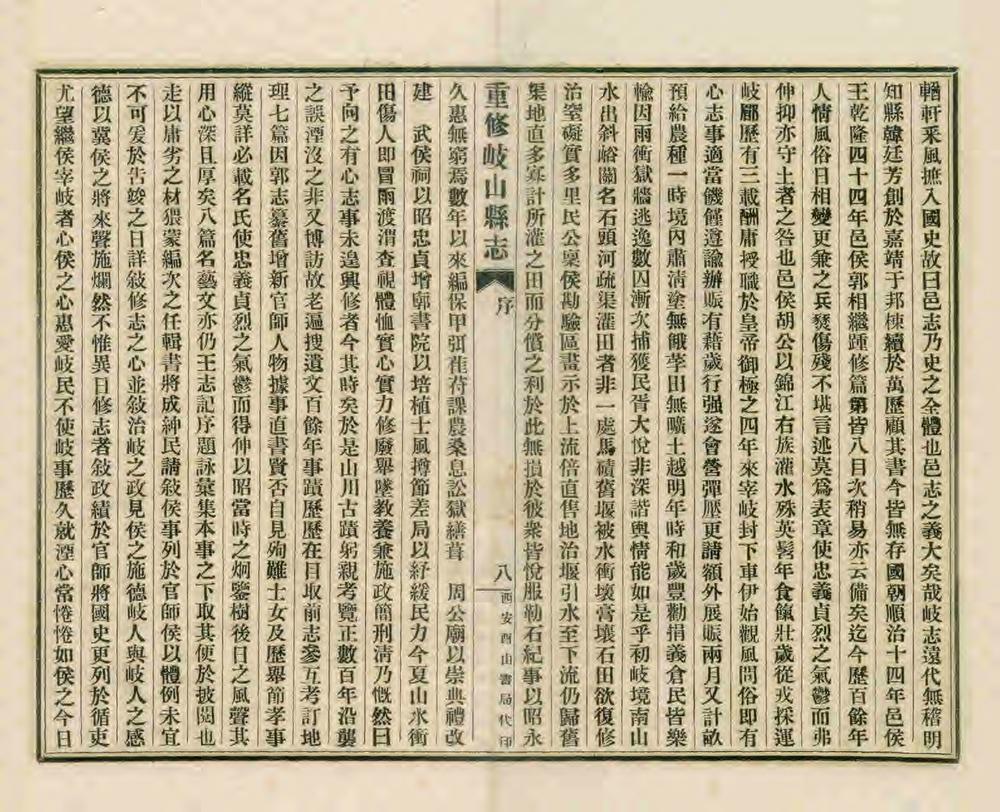 輶軒釆風摭入國史故曰邑志乃史之全體也邑志之義大矣哉岐志遠代無稽明
知縣韓廷芳創於嘉靖于邦棟續於萬歷顧其書今皆無存國朝順治十四年邑侯
王乾隆四十四年邑侯郭相繼踵修篇第皆八目次稍易亦云備矣迄今歷百餘年
人情風俗日相變更兼之兵燹傷殘不堪言述莫爲表章使忠義貞烈之氣鬱而弗
伸抑亦守土者之咎也邑侯胡公以錦江右族灌水殊英髫年食餼壯歲從戎採運
岐郿歷有三載酬庸授職於皇帝御極之四年來宰岐封下車伊始觀風問俗即有
心志事適當饑饉遵諭辦賑有藉歲行强遂會營彈壓更請額外展賑兩月又計畝
預給農種一時境內肅清塗無餓莩田無曠土越明年時和歲豐勸捐義倉民皆樂
輸因雨衝獄牆逃逸數囚漸次捕獲民胥大悅非深諳輿情能如是乎初岐境南山
水出斜峪關名石頭河疏渠灌田者非一處馬磧舊堰被水衝壞膏壤石田欲復修
治窒礙實多里民公稟侯勘驗區畫示於上流倍直售地治堰引水至下流仍歸舊
渠地直多寡計所灌之田而分償之利於此無損於彼衆皆悅服勒石紀事以昭永
重修岐山縣志 序 八 西安酉山書局代印
久惠無窮焉數年以來編保甲弭萑苻課農桑息訟獄繕葺 周公廟以崇典禮改
建 武侯祠以昭忠貞增郭書院以培植士風撙節差局以紓緩民力今夏山水衝
田傷人即冒雨渡渭查視體恤實心實力修廢舉墜教養兼施政簡刑淸乃慨然曰
予向之有心志事未遑興修者今其時矣於是山川古蹟躬親考覽正數百年沿襲
之誤湮沒之非又博訪故老遍搜遺文百餘年事蹟歷歷在目取前志參互考訂地
理七篇因郭志纂舊增新官師人物據事直書賢否自見殉難士女及歷舉節孝事
縱莫詳必載名氏使忠義貞烈之氣鬱而得伸以昭當時之炯鑒樹後日之風聲其
用心深且厚矣八篇名藝文亦仍王志記序題詠彙集本事之下取其便於披閱也
走以庸劣之材猥蒙編次之任輯書將成紳民請敍侯事列於官師侯以體例未宜
不可爰於告竣之日詳敍修志之心並敍治岐之政見侯之施德岐人與岐人之感
德以冀侯之將來聲施爛然不惟異日修志者敍政績於官師將國史更列於循吏
尤望繼侯宰岐者心侯之心惠愛岐民不使岐事歷久就湮心常惓惓如侯之今日